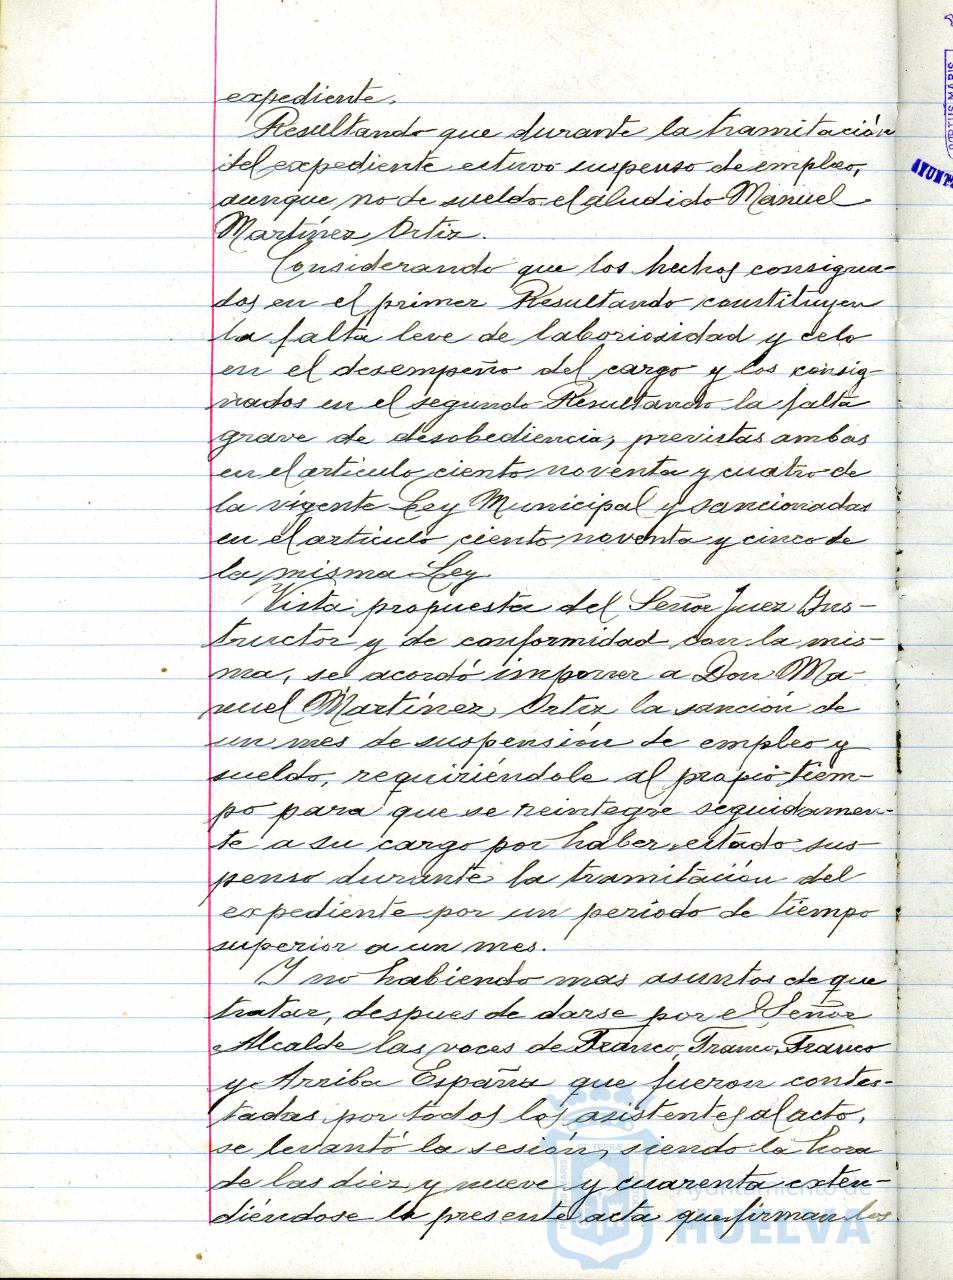 expediente.
Resultando que durante la tramitación
del expediente estuvo suspenso de empleo,
aunque no de sueldo el aludido Manuel
Martínez Ortiz.
Considerando que los hechos consigna-
dos en el primer Resultando constituyen
la falta leve de laboriosidad y celo
en el desempeño del cargo y los consig-
nados en el segundo Resultando la falta
grave de desobediencia, previstas ambas
en el artículo ciento noventa y cuatro de
la vigente Ley Municipal y sancionadas
en el artículo ciento noventa y cinco de
la misma Ley
Vista propuesta del Señor Juez Ins-
tructor y de conformidad con la mis-
ma, se acordó imponer a Don Ma-
nuel Martínez Ortiz la sanción de
un mes de suspensión de empleo y
sueldo, requiriéndole al propio tiem-
po para que se reintegre seguidamen-
te a su cargo por haber estado sus-
penso durante la tramitación del
expediente por un periodo de tiempo
superior a un mes.
Y no habiendo mas asuntos de que
tratar, despues de darse por el Señor
Alcalde las voces de Franco, Franco, Franco
y Arriba España que fueron contes-
tadas por todos los asistentes al acto,
se levantó la sesión, siendo la hora
de las diez y nueve y cuarenta exten-
diéndose la presente acta que firman los
Ayuntamiento de
HUELVA